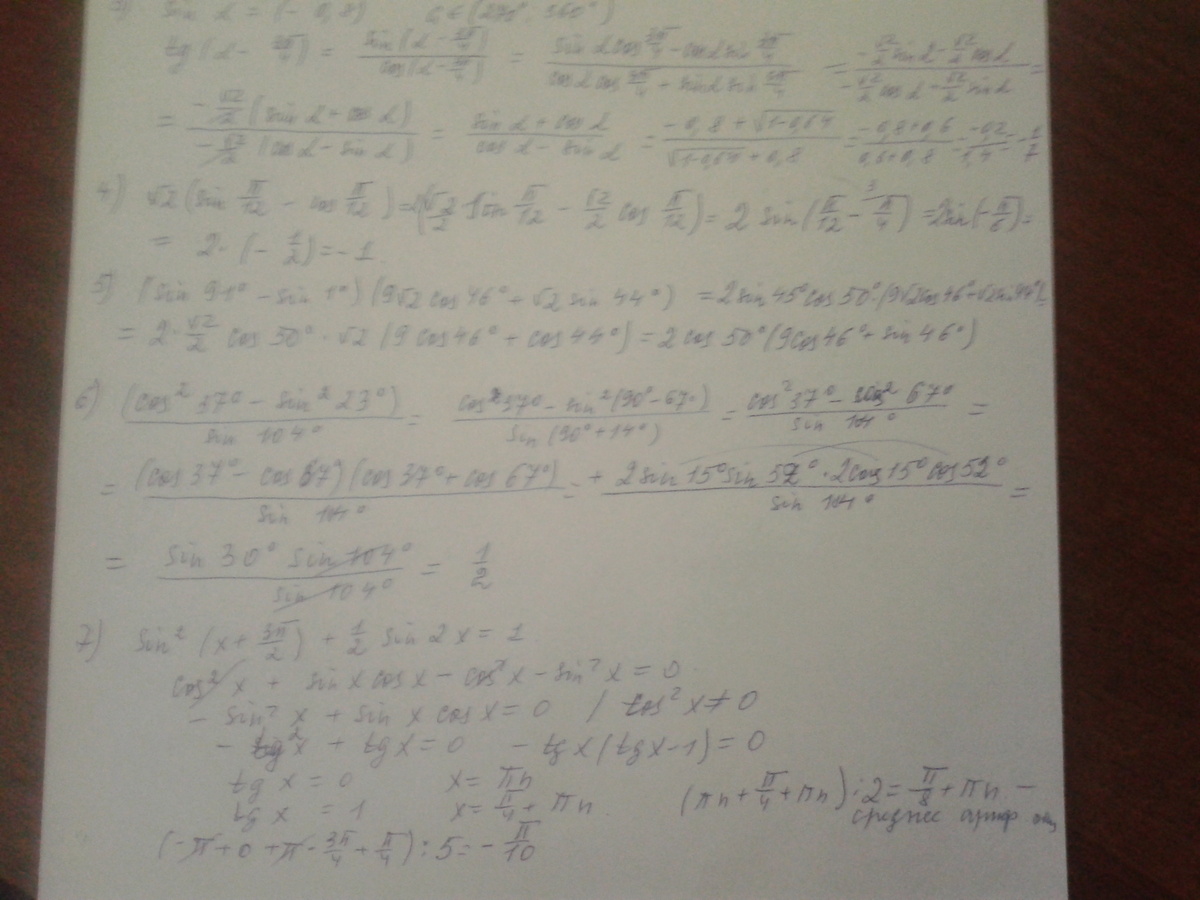 3) sin α = (- 0,8) α ∈ (270°; 360°)
tg (α - 3π/4) = sin(α - 3π/4) / cos(α - 3π/4) = (sin α cos 3π/4 - cos α sin 3π/4) / (cos α cos 3π/4 + sin α sin 3π/4) = (-√2/2 sin α - √2/2 cos α) / (-√2/2 cos α - √2/2 sin α) =
= -√2/2 (sin α + cos α) / -√2/2 (cos α - sin α) = (sin α + cos α) / (cos α - sin α) = (-0,8 + √1-0,64) / (√1-0,64 + 0,8) = (-0,8+0,6) / (0,6+0,8) = -0,2 / 1,4 = -1/7
4) √2 (sin π/12 - cos π/12) = (√2/2 sin π/12 - √2/2 cos π/12) = 2 sin (π/12 - π/4) = 2sin(-π/6) =
= 2·(-1/2) = -1.
5) (sin 91° - sin 1°)(9√2 cos 46° + √2 sin 44°) = 2 sin 45° cos 50°·(9√2cos 46° + √2 sin 44°) =
= 2·√2/2 cos 50°·√2 (9 cos 46° + cos 44°) = 2 cos 50° (9cos 46° + sin 46°)
6) (cos² 37° - sin² 23°) / sin 104° = (cos² 37° - sin² (90° - 67°)) / sin (90° + 14°) = (cos² 37° - cos² 67°) / sin 104° =
= (cos 37° - cos 67°)(cos 37° + cos 67°) / sin 104° = + 2 sin 15° sin 52° · 2cos 15° cos 52° / sin 104° =
= sin 30° sin 104° / sin 104° = 1/2
7) sin² (x + 3π/2) + 1/2 sin 2x = 1
cos² x + sin x cos x - cos² x - sin² x = 0
- sin² x + sin x cos x = 0 / cos² x ≠ 0
- tg² x + tg x = 0 - tg x (tg x - 1) = 0
tg x = 0 x = πn
tg x = 1 x = π/4 + πn (πn + π/4 + πn) : 2 = π/8 + πn -
среднее ариф.
(-π + 0 + π - 3π/4 + π/4) : 5 = - π/10